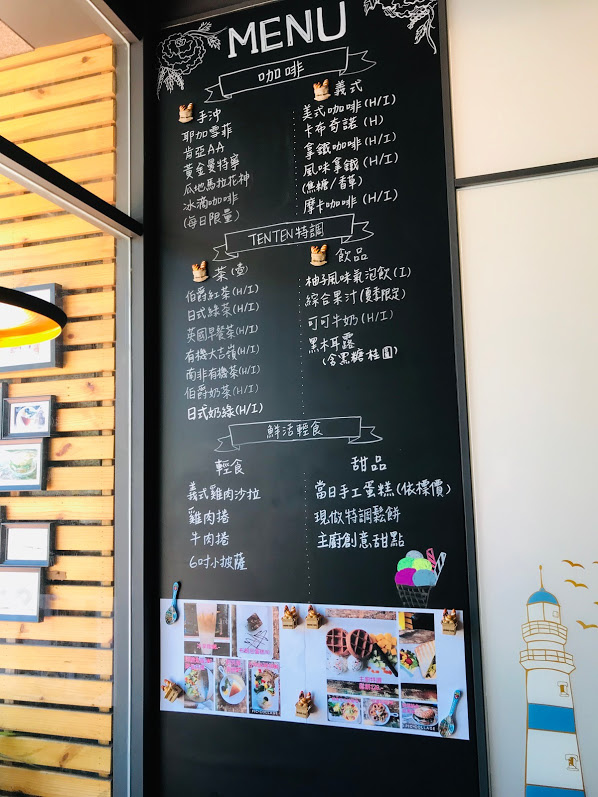 MENU
咖啡
手沖
耶加雪菲
肯亞AA
黃金曼特寧
瓜地馬拉花神
冰滴咖啡
(每日限量)
義式
美式咖啡(H/I)
卡布奇諾(H)
拿鐵咖啡(H/I)
風味拿鐵(H/I)
(焦糖/香草)
摩卡咖啡(H/I)
TENTEN特調
茶(壺)
伯爵紅茶(H/I)
日式綠茶(H/I)
英國早餐茶(H/I)
有機大吉嶺(H/I)
南非有機茶(H/I)
伯爵奶茶(H/I)
日式奶綠(H/I)
飲品
柚子風味氣泡飲(I)
綜合果汁(夏季限定)
可可牛奶(H/I)
黑木耳露
(含黑糖桂圓)
鮮活輕食
輕食
義式雞肉沙拉
雞肉捲
牛肉捲
6吋小披薩
甜品
當日手工蛋糕(依標價)
現做特調鬆餅
主廚創意甜點
PICCOLLAGE
PICCOLLAGE